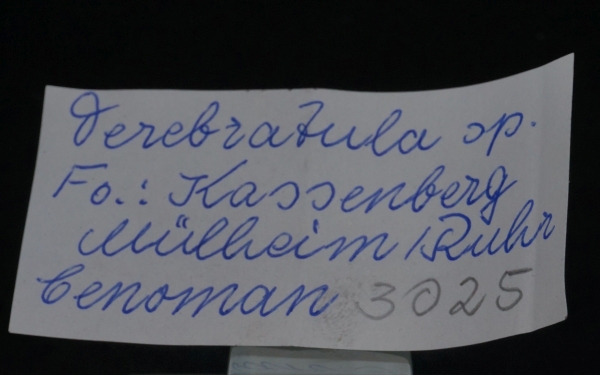 Terebratula sp.
Fo.: Kassenberg
Mülheim/Ruhr
Cenoman 3025